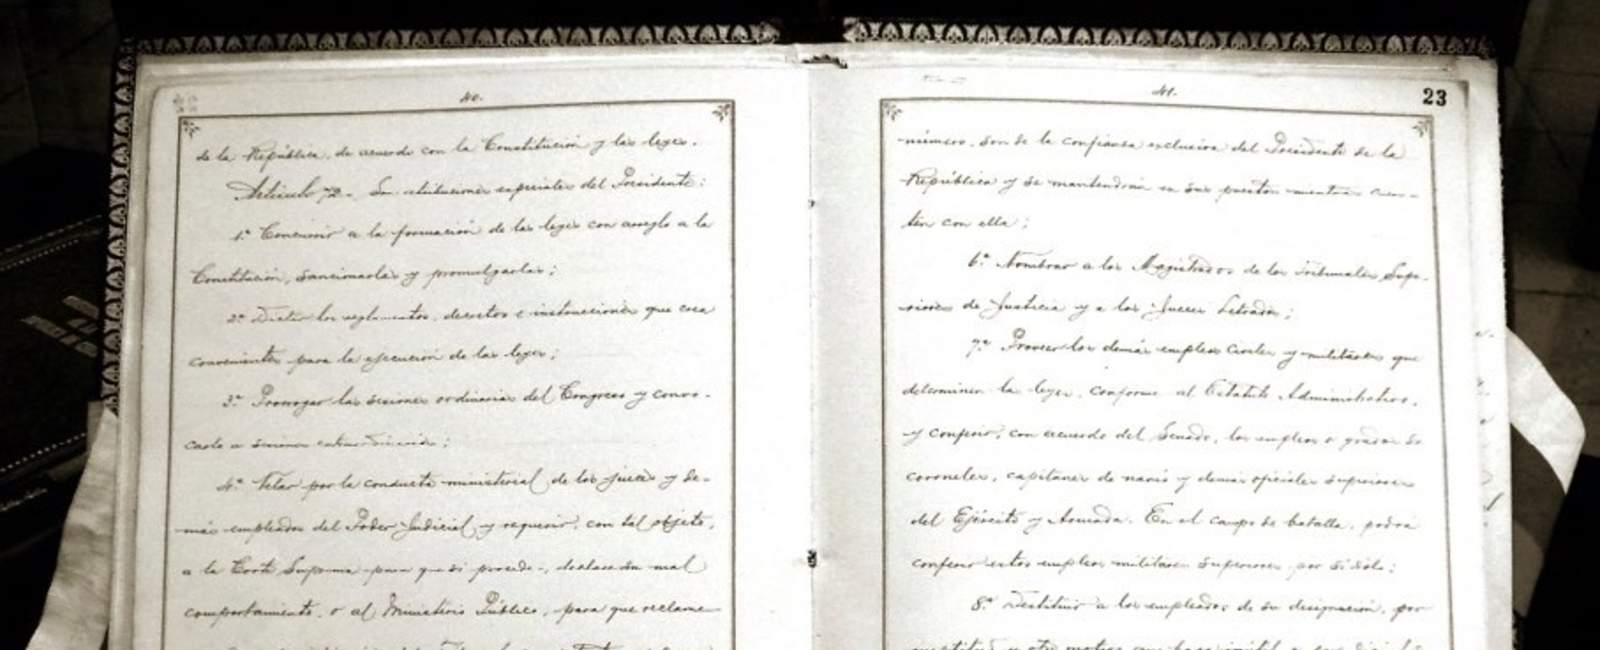 40.
de la República, de acuerdo con la Constitución y las leyes.
Artículo 72.- Son atribuciones especiales del Presidente:
1.º Concurrir a la formación de las leyes con arreglo a la
Constitución, sancionarlas y promulgarlas;
2.º Dictar los reglamentos, decretos e instrucciones que crea
convenientes para la ejecución de las leyes;
3.º Prorrogar las sesiones ordinarias del Congreso y convo-
carlo a sesiones extraordinarias;
4.º Velar por la conducta ministerial de los jueces y de-
más empleados del Poder Judicial, y requerir, con tal objeto,
a la Corte Suprema para que, si procede, declare su mal
comportamiento, o al Ministerio Público, para que reclame
41.
23
número, son de la confianza exclusiva del Presidente de la
República y se mantendrán en sus puestos mientras cuen-
ten con ella;
6.º Nombrar a los Magistrados de los Tribunales Supe-
riores de Justicia y a los Jueces Letrados;
7.º Proveer los demás empleos civiles y militares que
determinen las leyes, conforme al Estatuto Administrativo,
y conferir, con acuerdo del Senado, los empleos o grados de
coroneles, capitanes de navío y demás oficiales superiores
del Ejército y Armada. En el campo de batalla, podrá
conferir estos empleos militares superiores por sí solo;
8.º Destituir a los empleados de su designación, por